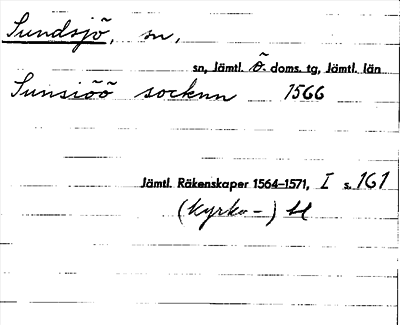 Sundsjö, sn,
sn, Jämtl. Ö. doms. tg, Jämtl. län
Sunsiöö socknn 1566
Jämtl. Räkenskaper 1564-1571, I s. 161
(Kyrko-)